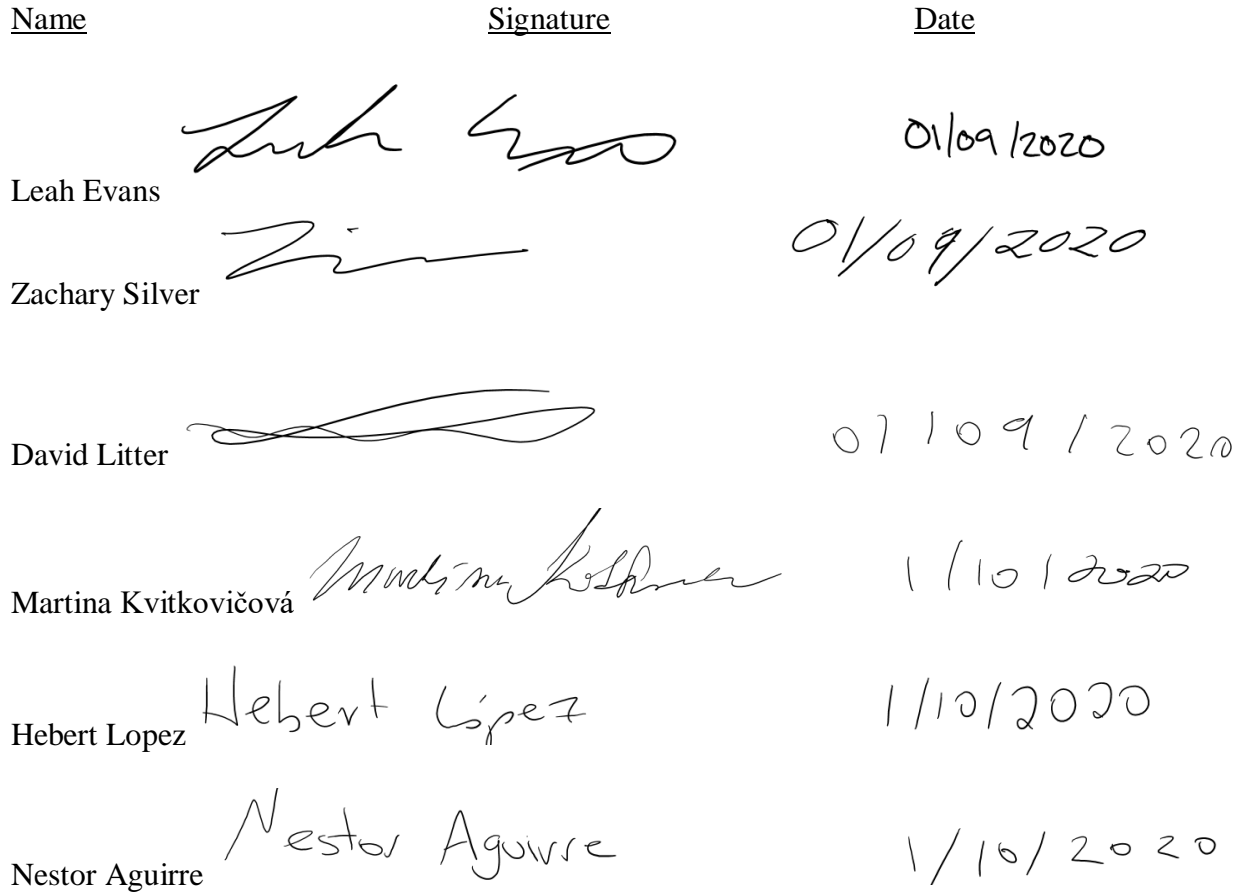 Name Signature Date
Leah Evans 01/09/2020
Zachary Silver 01/09/2020
David Litter 01/09/2020
Martina Kvitkovičová 1/10/2020
Hebert Lopez Hebert López 1/10/2020
Nestor Aguirre Nestor Aguirre 1/10/2020